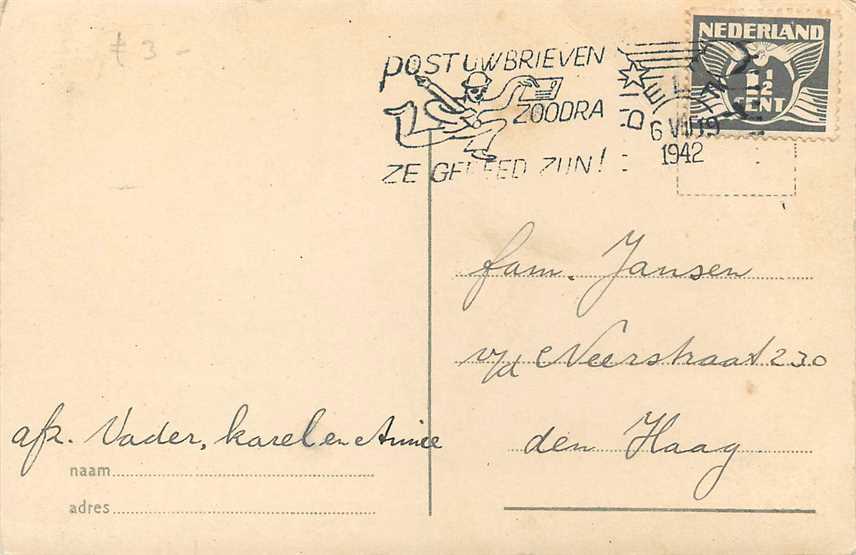 £ 3 -
POST UW BRIEVEN
ZOODRA
ZE GEREED ZIJN!
6 VIII 19
1942
NEDERLAND
1½
CENT
fam. Jansen
v/d Neerstraat 230
den Haag
afz. Vader, Karel en Annie
naam
adres